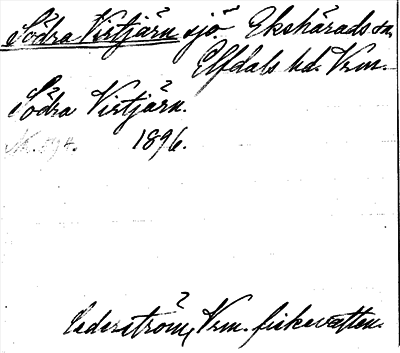 Södra Virtjärn sjö Ekshärads sn.
Elfdals hd. Vrm.
Södra Virtjärn.
1896.
Cederström, Vrm. fiskevatten.